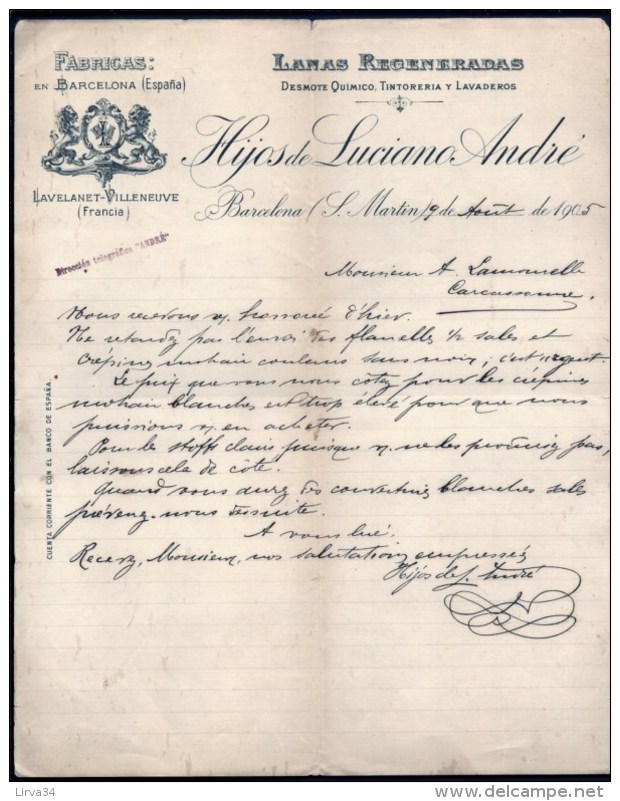 FÁBRICAS:
EN BARCELONA (España)
LAVELANET-VILLENEUVE
(Francia)
LANAS REGENERADAS
DESMOTE QUÍMICO, TINTORERIA Y LAVADEROS
Hijos de Luciano André
Barcelona (S. Martin) 9 de Août de 1905
Dirección telegráfica "ANDRÉ"
Monsieur A. Lamourelle
Carcassonne,
Nous recevons v/. honorée d'hier.
Ne retardez pas l'envoi des flanelles 1/2 sales et
crépins mohair couleurs sans noix; c'est urgent.
Le prix que vous nous cotez pour les crépins
mohair blanches est trop élevé pour que nous
puissions v/. en acheter.
Pour les stoffs clairs puisque v/. ne les produisez pas,
laissons cela de côté.
Quand vous aurez des couvertures blanches sales
prévenez-nous de suite.
A vous lire.
Recevez, Monsieur, nos salutations empressées
Hijos de L. André
CUENTA CORRIENTE CON EL BANCO DE ESPAÑA.
Lirva34
delcampe.net